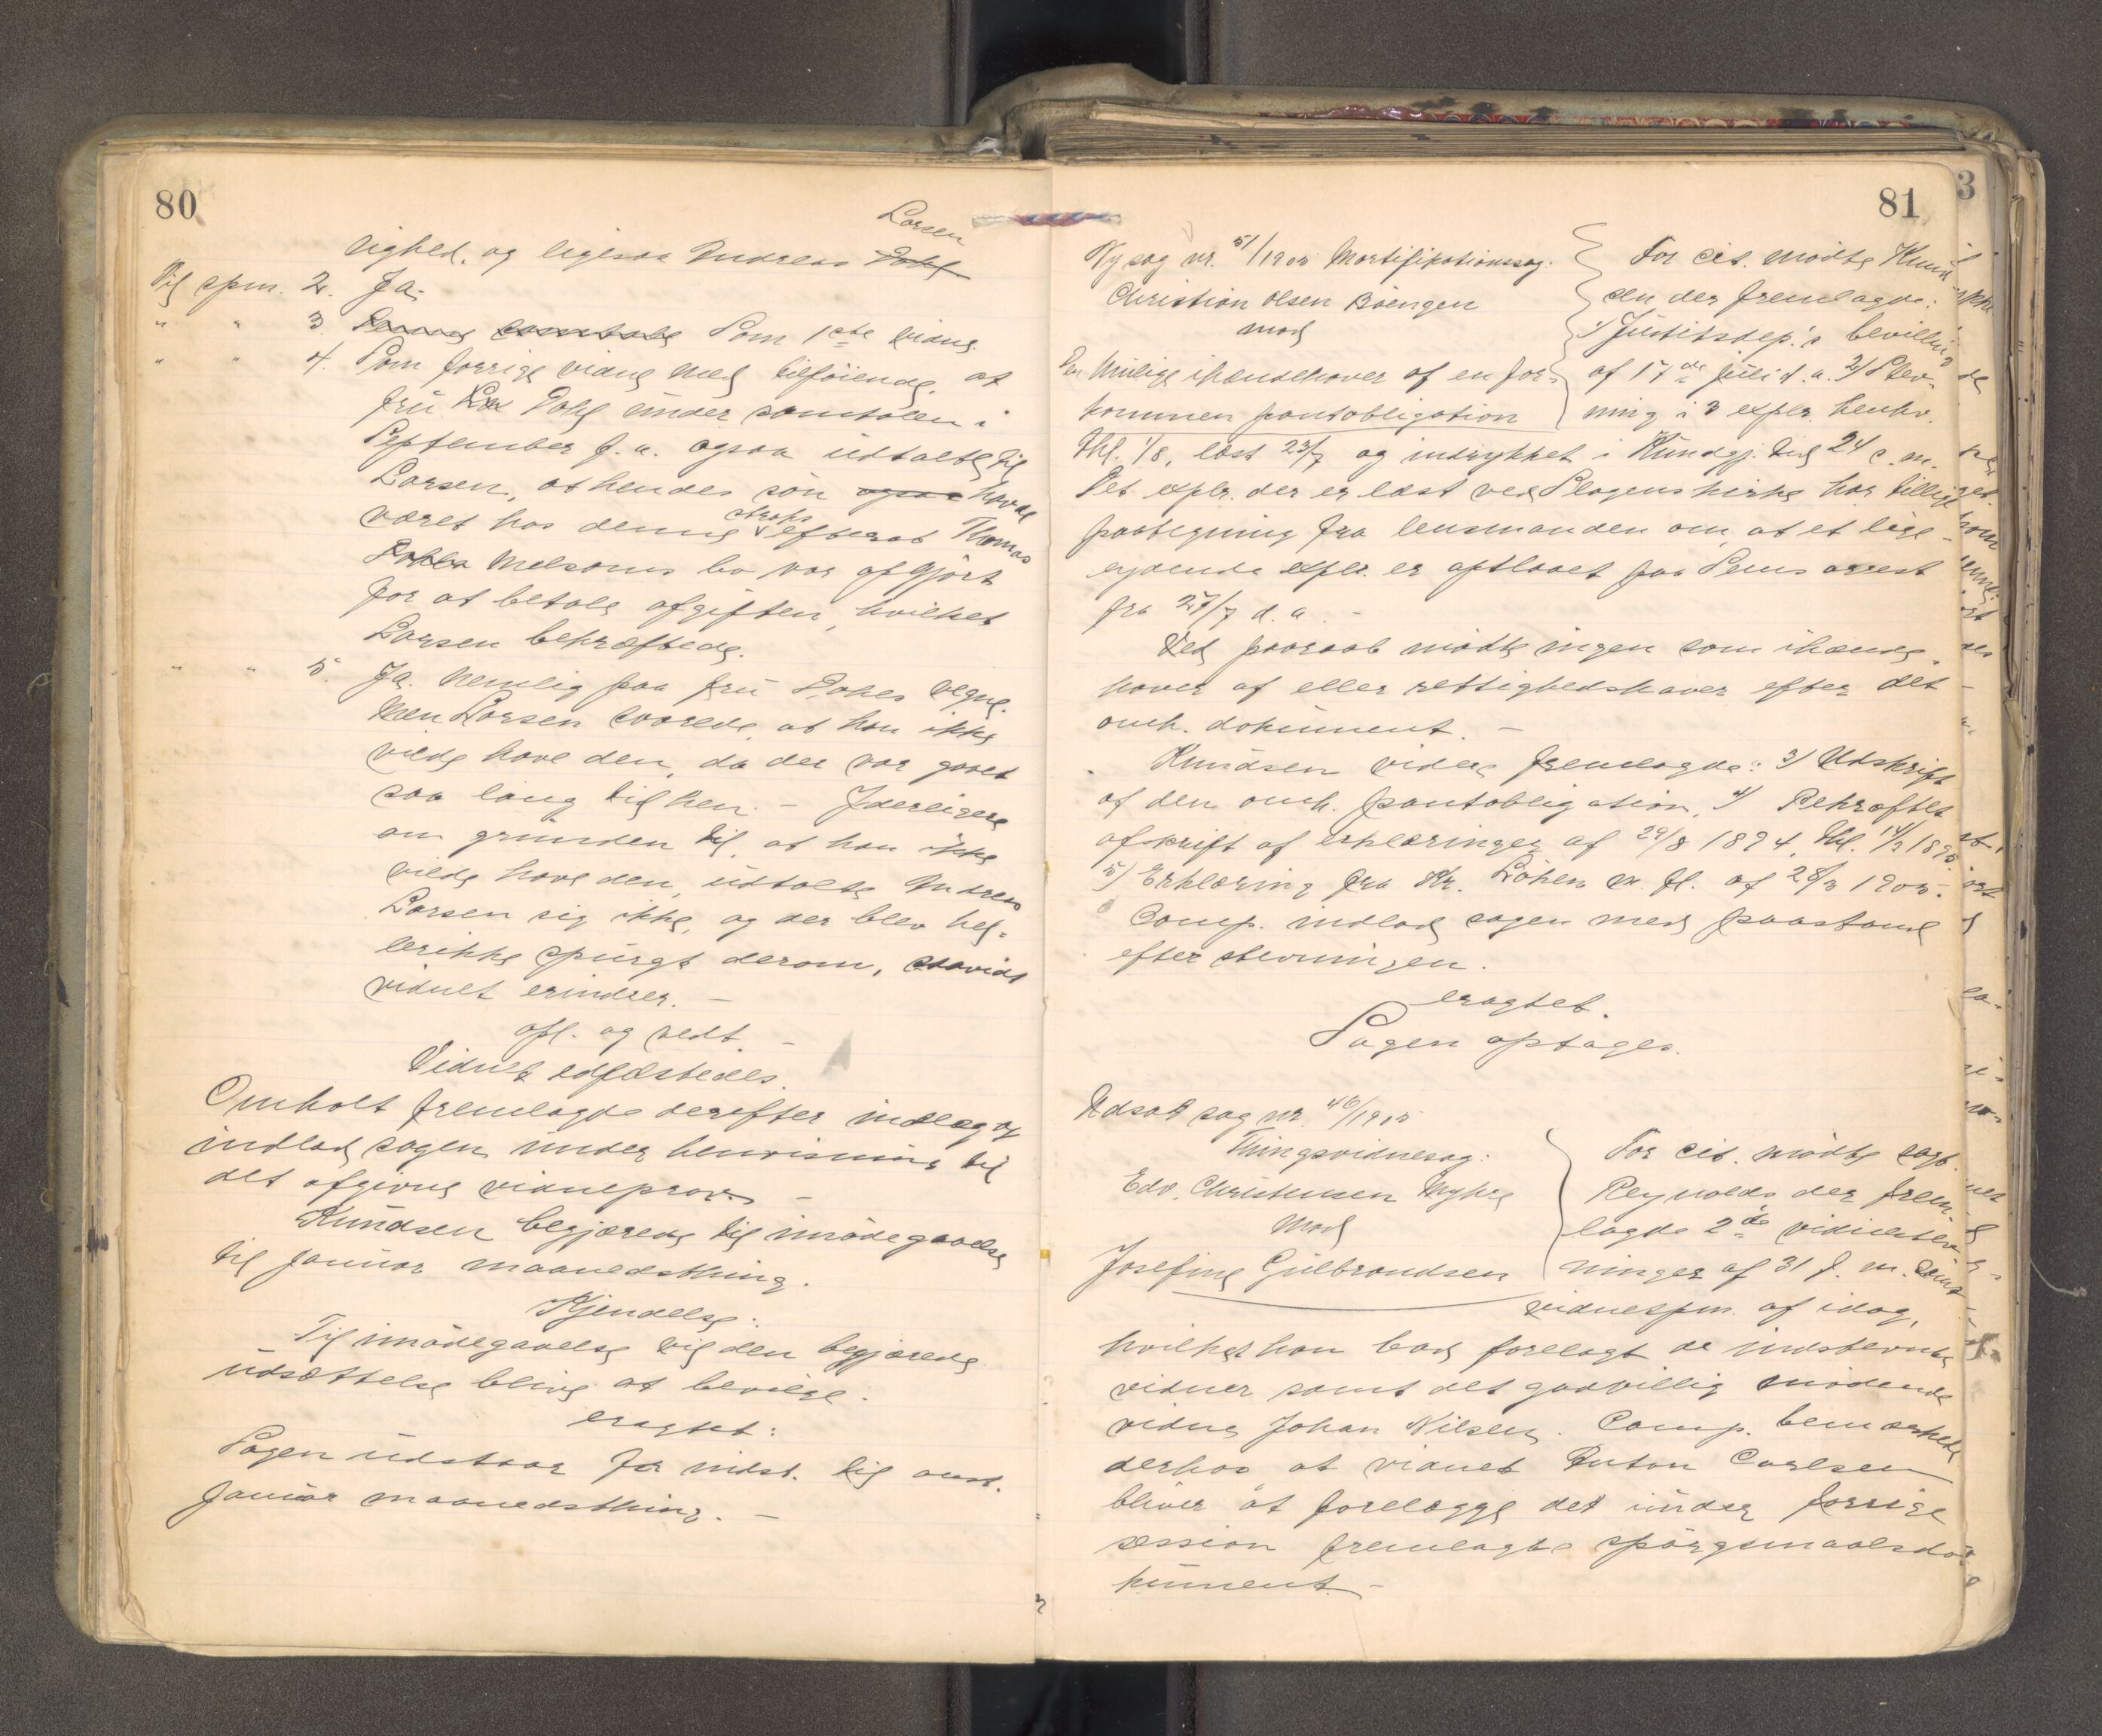 80
Larsen
lighed. og ligesaa Andreas Dahl
Til spm. 2. Ja.
" " 3. Som 1ste vidne.
" " 4. Som forrige vidne med tilföiende, at
fru Dahl under samtalen i
September f. a. ogsaa udtalte til
Larsen, at hendes sön ogsaa havde
straks
været hos denne efterat Thomas
Melsoms bo var afgjort
for at betale afgiften, hvilket
Larsen bekræftede.
" " 5. Ja. Nemlig paa fru Dahls vegne.
Men Larsen svarede, at han ikke
vilde have den, da der var gaaet
saa lang tid hen. – Yderligere
om grunden til, at han ikke
vilde have den, udtalte Andreas
Larsen sig ikke, og der blev hel-
lerikke spurgt derom, saavidt
vidnet erindrer. –
opl. og vedt. –
Vidnet edfæstedes.
Omholt fremlagde derefter indlæg og
indlod sagen under henvisning til
det afgivne vidneprov. –
Knudsen begjærede til imödegaaelse
til januar maanedsthing.
Kjendelse:
Til imödegaaelse vil den begjærede
udsættelse blive at bevilge.
eragtet:
Sagen udstaar for indst. til anst.
januar maanedsthing. –
81
Ny sag nr. 51/1905 Mortifikationssag.
Christian Olsen Böengen
mod
En mulige ihændehaver af en for-
kommen pantobligation
For cit. mödte Knud-
sen der fremlagde:
1) Justitsdep.'s bevilling
af 17de juli d. a. 2) Stev-
ning i 3 explr. henhv.
thl. 1/8, læst 23/7 og indrykket i Kundgj. tid. 24 s. m.
Det explr. der er læst ved Slagens kirke har tillige
paategning fra lensmanden om, at et lige-
lydende explr. er opslaaet paa Sems arrest
fra 27/7 d. a. –
Ved paaraab mödte ingen som ihænde-
haver af eller rettighedshaver efter det
omh. dokument. –
Knudsen videre fremlagde: 3) Udskrift
af den omh. pantobligation, 4) Bekræftet
afskrift af erklæringer af 29/8 1894, thl. 14/3 1895
5) Erklæring fra Kr. Löken m. fl. af 28/3 1905.
Comp. indlod sagen med paastand
efter stevningen.
eragtet.
Sagen optages.
Udsat sag nr. 46/1905
Thingsvidnesag:
Edv. Christensen Myhre
mod
Josefine Gulbrandsen
For cit. mödte sagf.
Reynolds, der frem-
lagde 2de vidnestev-
ninger af 31 f. m. samt
vidnespm. af idag,
hvilket han bad forelagt de indstevnte
vidner samt det godvillig mödende
vidne Johan Nilsen. Comp. bemærkede
derhos at vidnet Anton Carlsen
bliver at forelægge det under forrige
session fremlagte spörgsmaalsdo-
kument. –